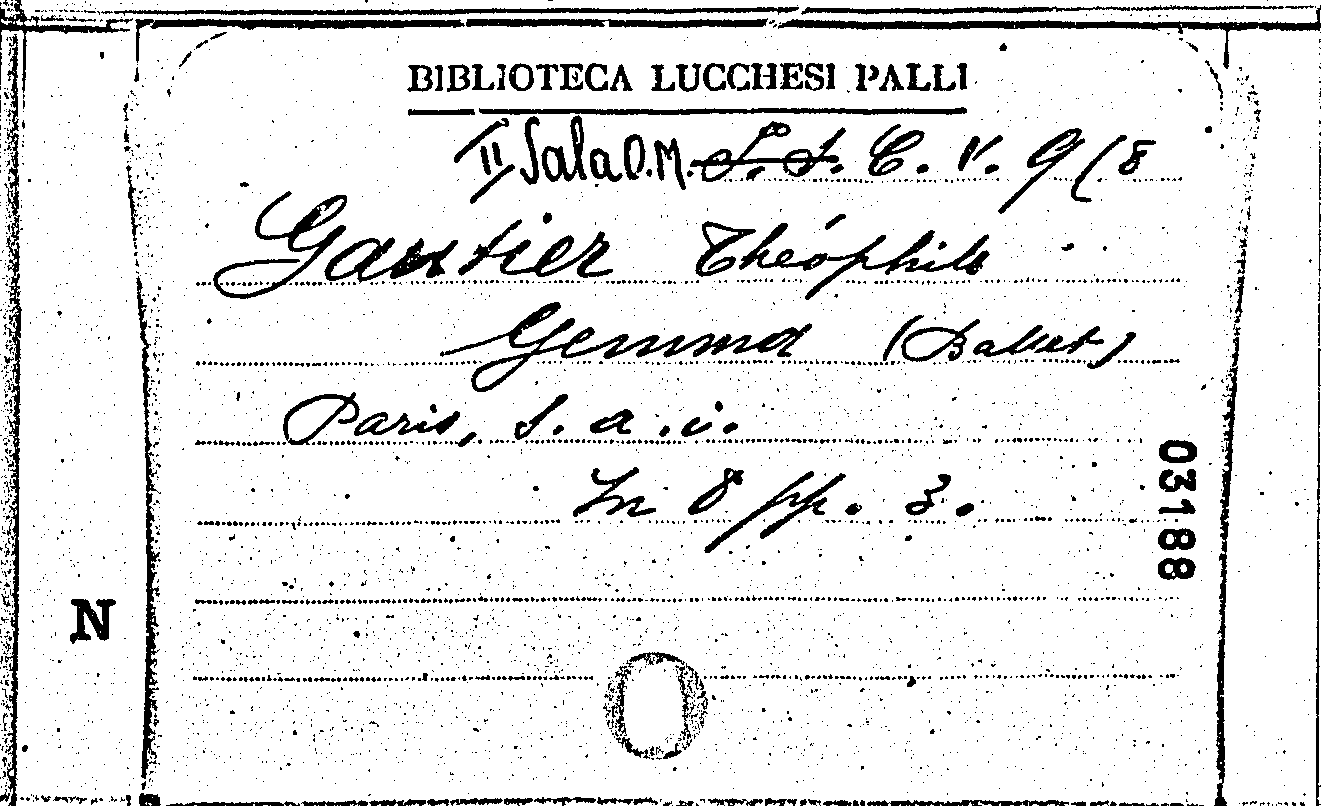 BIBLIOTECA LUCCHESI PALLI
II Sala O.M. S. S. C. V. 9 (8
Gautier Théophile
Gemma (Ballet)
Paris, s. a. i.
In 8 pp. 3.
03188
N